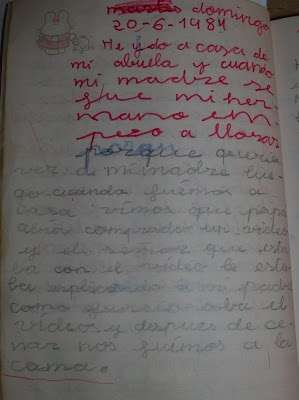 martes domingo
20-6-1984
He ydo a casa de
mi abuela y cuando
mi madre se
fue mi her
mano em
pezo a llorar
porque queria
ver a mi madre lue
go cuando fuimos a
casa vimos que papa
abia comprado un video
y el señor que esta
ba con el video le esta
ba esplicando a mi padre
como funcionaba el
video y despues de ce
nar nos fuimos a la
cama.